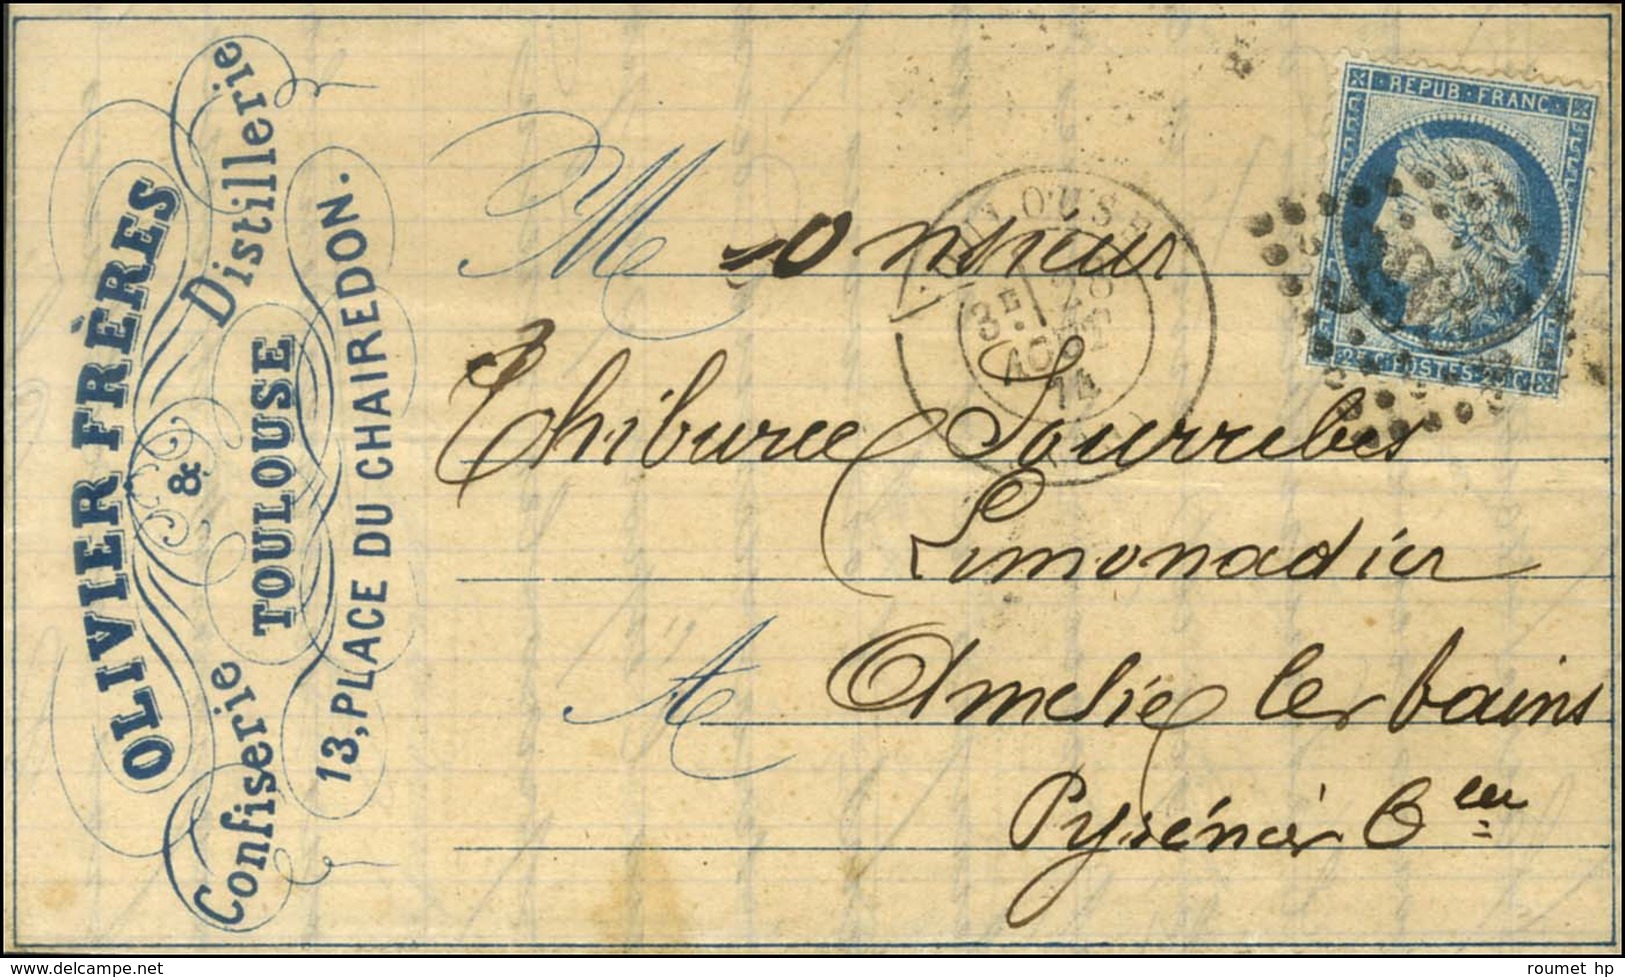 OLIVIER FRÈRES
Confiserie & Distillerie
TOULOUSE
13, PLACE DU CHAIREDON.
REPUB. FRANC.
25 C POSTES 25 C
TOULOUSE
3E 28
AOUT
74
Monsieur
Thiburce Sourribes
Limonadier
A Amelie les bains
Pyrénées Oles
www.delcampe.net
roumet hp